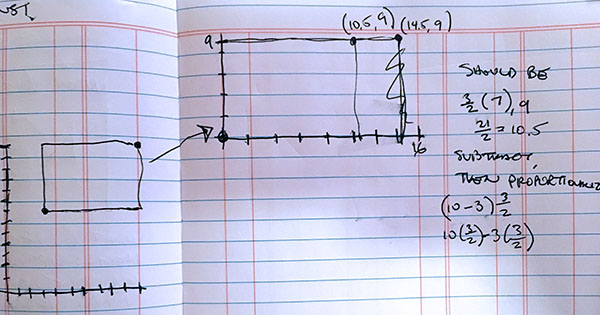 (10.5, 9) (14.5, 9)
9
16
SHOULD BE
3/2 (7), 9
21/2 = 10.5
SUBTRACT,
THEN PROPORTIONALIZ
(10-3) 3/2
10(3/2)-3(3/2)